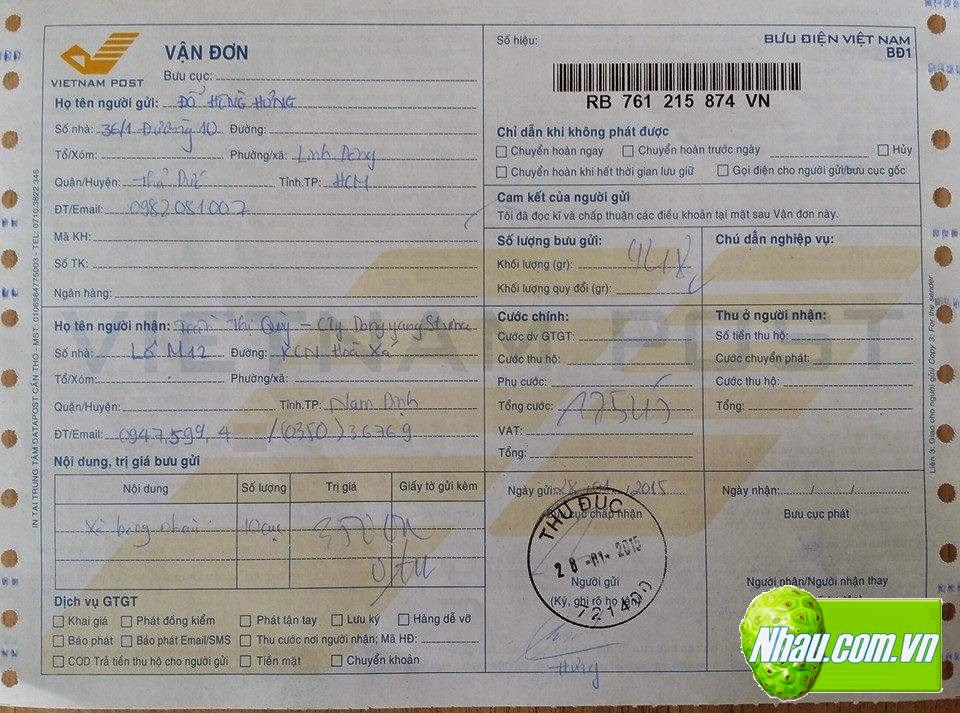 VIETNAM POST
VẬN ĐƠN
Bưu cục:
Họ tên người gửi: ĐỖ HÙNG HƯNG
Số nhà: 36/1 Đường 10 Đường:
Tổ/Xóm: Phường/xã: Linh Đông
Quận/Huyện: Thủ Đức Tỉnh.TP: HCM
ĐT/Email: 0982081007
Mã KH:
Số TK:
Ngân hàng:
Họ tên người nhận: Trần Thị Quỳ - CTy
Số nhà: Lô M12 Đường: KCN Hòa Xá
Tổ/Xóm: Phường/Xã:
Quận/Huyện: Tỉnh.TP: Nam Định
ĐT/Email: 0947.599.4 /(0350) 36769
Nội dung, trị giá bưu gửi
Nội dung Số lượng Trị giá Giấy tờ gửi kèm
Dịch vụ GTGT
Khai giá Phát đồng kiểm Phát tận tay Lưu ký Hàng dễ vỡ
Báo phát Báo phát Email/SMS Thu cước nơi người nhận; Mã HĐ:
COD Trả tiền thu hộ cho người gửi Tiền mặt Chuyển khoản
Số hiệu: BƯU ĐIỆN VIỆT NAM
BĐ1
RB 761 215 874 VN
Chỉ dẫn khi không phát được
Chuyển hoàn ngay Chuyển hoàn trước ngày Hủy
Chuyển hoàn khi hết thời gian lưu giữ Gọi điện cho người gửi/bưu cục gốc
Cam kết của người gửi
Tôi đã đọc kĩ và chấp thuận các điều khoản tại mặt sau Vận đơn này.
Số lượng bưu gửi: Chú dẫn nghiệp vụ:
Khối lượng (gr):
Khối lượng quy đổi (gr):
Cước chính: Thu ở người nhận:
Cước dv GTGT: Số tiền thu hộ:
Cước thu hộ: Cước chuyển phát:
Phụ cước: Cước thu hộ:
Tổng cước: Tổng:
VAT:
Tổng:
Ngày gửi: 28/01/2015 Ngày nhận:..../..../....
Bưu cục chấp nhận Bưu cục phát
THỦ ĐỨC
28-01-2015
721400
Người gửi Người nhận/Người nhận thay
(Ký, ghi rõ họ tên)
Hưng
IN TẠI TRUNG TÂM DATAPOST CẦN THƠ - MST: 010656477​5003 - TEL: 0710.3822 345
Liên 3: Giao cho người gửi/ Copy 3: For the sender
VIETNAM POST
Nhau.com.vn